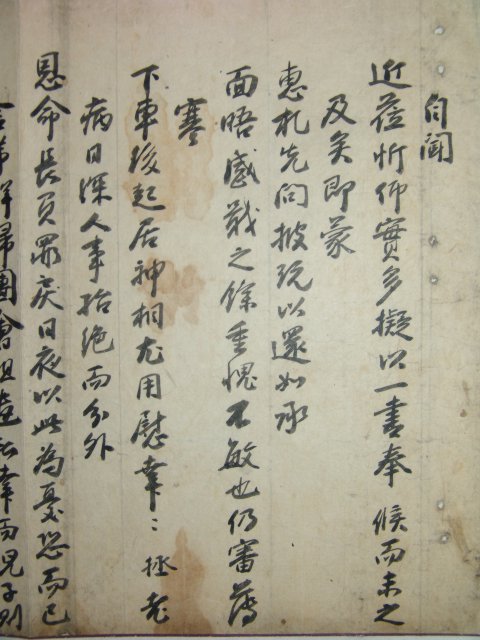 自聞
近莅忻仰實多擬以一書奉候而未之
及矣即蒙
惠札先問披玩以還如承
面晤感戢之餘重愧不敏也仍審薄
寒
下車後起居神相尤用慰幸〻拯老
病日深人事殆絶而分外
恩命長負罪戾日夜以此為憂恐而已